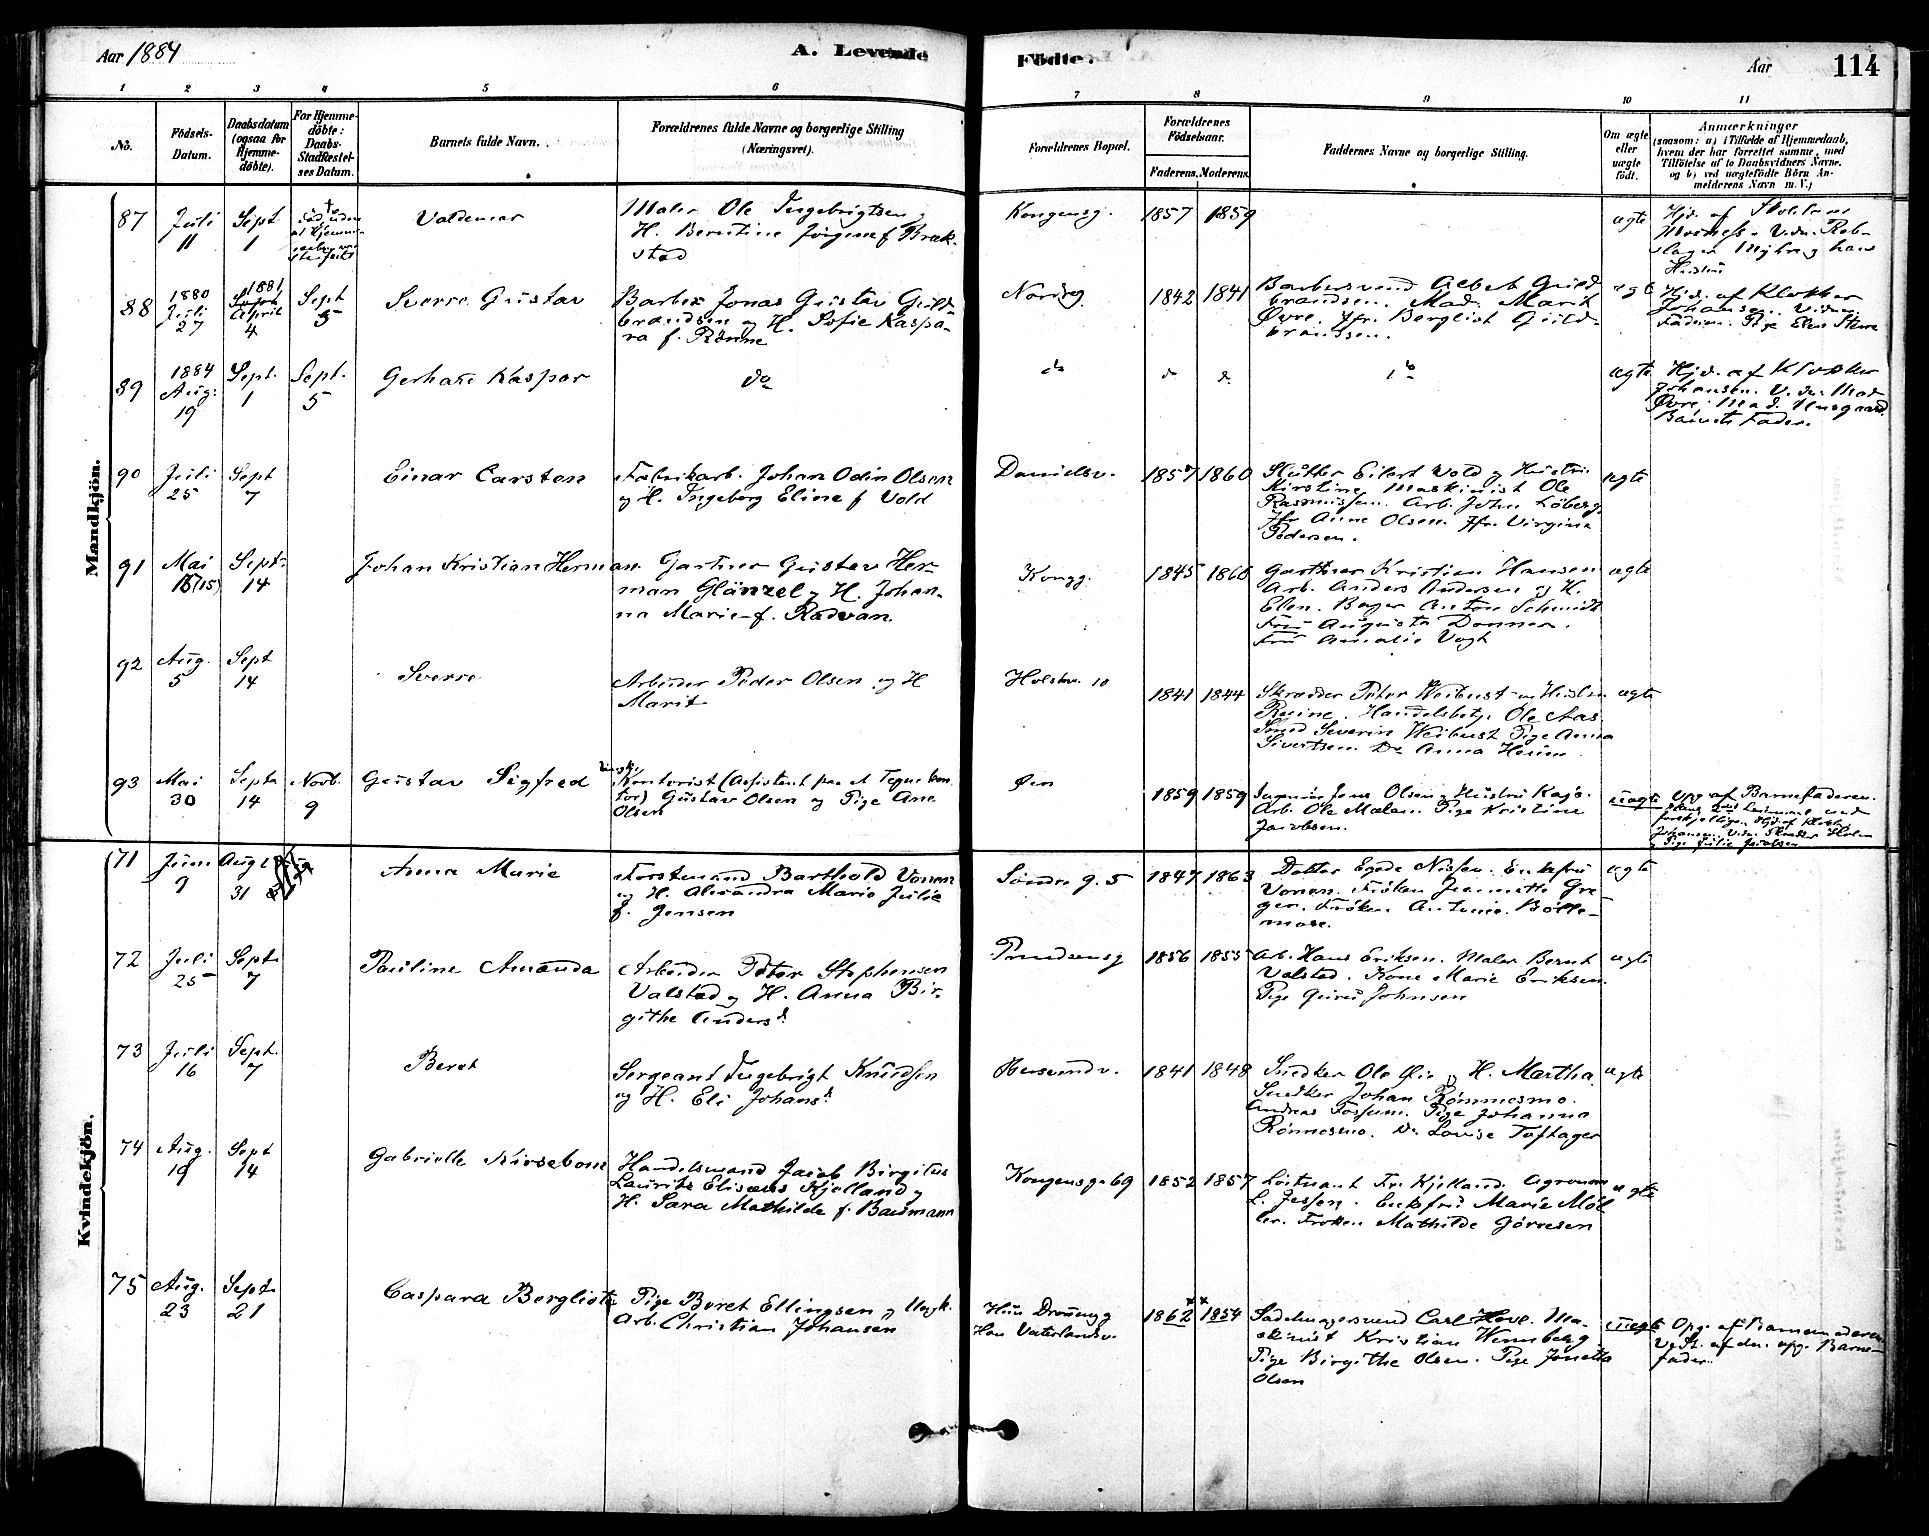 Aar 1884
A. Levende
Födte.
Aar
114
1 2 3 4 5 6 7 8 9 10 11
No.
Födsels-
Datum.
Daabsdatum
(ogsaa for
Hjemme-
döbte).
For Hjemme-
döbte:
Daabs-
Stadfæstel-
ses Datum.
Barnets fulde Navn.
Forældrenes fulde Navne og borgerlige Stilling
(Næringsvei).
Forældrenes Bopæl.
Forældrenes
Födselsaar.
Faderens. Moderens.
Faddernes Navne og borgerlige Stilling.
Om ægte
eller
uægte
födt.
Anmærkninger
(saasom: a) i Tilfælde af Hjemmedaab,
hvem der har forrettet samme, med
Tilföielse af to Daabsvidners Navne.
og b) ved uægtefödte Börn An-
melderens Navn m. V.)
Mandkjön.
87
Juli
11
Sept
1
Valdemar
Maler Ole Ingebrigtsen
H. Berntine Jörgine f. Brek-
stad
Kongensg.
1857 1859
ægte
88
1880
Juli
27
1881
April
4
Sept
5
Sverre Gustav
Barber Jonas Gustav Guld-
brandsen og H. Sofie Kaspa-
ra f. Rönne
Nordg
1842 1841
Barbersvend Albert Guld
brandsen. Mad. Marit
Övre. Jfr. Bergliot Guld-
brandsen.
ægte
Hjd. af Klokker
Johansen. Vidn.
Faderen. Pige Elen Stene
89
1884
Aug.
19
Sept.
1
Sept.
5
Gerhard Kaspar
do
do
do
do
do
ægte
Hjd. af Klokker
Johansen. Vidn. Mad
Övre. Mad. Husgaard.
Barnets Fader.
90
Juli
25
Sept
7
Einar Carsten
Fabrikarb. Johan Odin Olsen
og H. Ingeborg Eline f Vold
Danielsv.
1857 1860
Slutter Eilert Vold og Hustru
Kirstine. Maskinist Ole
Rasmussen. Arb. John Löberg.
Jfr Anne Olsen. Jfr. Virginie
Pedersen.
ægte
91
Mai
16 (15)
Sept.
14
Johan Kristian Herman
Gartner Gustav Her-
man Glänzel og H. Johan-
na Marie f. Radvan.
Kongg.
1845 1860
Gartner Kristian Hansen
Arb. Anders Andersen og H.
Elen. Bager Anton Schmidt
Fru Augusta Donner.
Fru Amalie Vogt
ægte
92
Aug.
5
Sept
14
Sverre
Arbeider Peder Olsen og H
Marit
Holstv. 10
1841 1844
Skrædder Peter Weibust og Hustru
Regine. Handelsbetj. Ole Aas.
Smed Severin Weibust Pige Anna
Sivertsen. Do Anna Heim.
ægte
93
Mai
30
Septr
14
Novb.
9
Gustav Sigfred
Kontorist (Assistent paa et Tegnekon
tor) Gustav Olsen og Pige Ane
Olsen
Öen
1859 1859
Ingeniör Jens Olsen. Hustru Kaja.
Arb. Ole Malen. Pige Kristine
Jacobsen.
uægte
Opg. af Barnefaderen.
Kvindekjön.
71
Juni
9
Aug
31
Anna Marie
Forstmand Barthold Vonen
og H. Alexandra Marie Julie
f. Jensen
Söndre g. 5
1847 1863
Doktor Egede Nissen. Enkefru
Vonen. Fröken Jeanette Gre
gersen. Fröken Antonie Bölle-
mose.
ægte
72
Juli
25
Sept.
7
Pauline Amanda
Arbeider Peter Stephensen
Valstad og H. Anna Bir-
githe Andersd.
Prindsensg
1856 1855
Arb. Hans Eriksen. Maler Bernt
Valstad. Kone Marie Eriksen.
Pige Guru Johnsen
ægte
73
Juli
16
Sept.
7
Beret
Sergeant Ingebrigt Knudsen
og H. Eli Johansd.
1841 1848
Snedker Ole Öie og H. Martha.
Snedker Johan Rönnesmo.
Andreas Fossum. Pige Johanna
Rönnesmo. Do Lovise Toftager
ægte
74
Aug.
19
Sept
14
Gabrielle Kirsebom
Handelsmand Jacob Birgitus
Laurits Elisæus Kjelland og
H. Sara Mathilde f. Baumann
Kongensg. 69
1852 1857
Löitnant Fr. Kjelland. Agronom
L. Jessen. Enkefru Marie Möl
ler. Fröken Mathilde Görresen
ægte
75
Aug.
23
Septr
21
Caspara Bergliot
Pige Beret Ellingsen og Ungk.
Arb. Christian Johansen
Hun Dronningg
Han Vaterlandsv.
1862 1854
Sadelmagersvend Carl Hove. Ma-
skinist Kristian Wennberg
Pige Birgithe Olsen. Pige Jonetta
Olsen
uægte
Opg. af Barnemoderen
Vedt. af den opg. Barne-
fader.